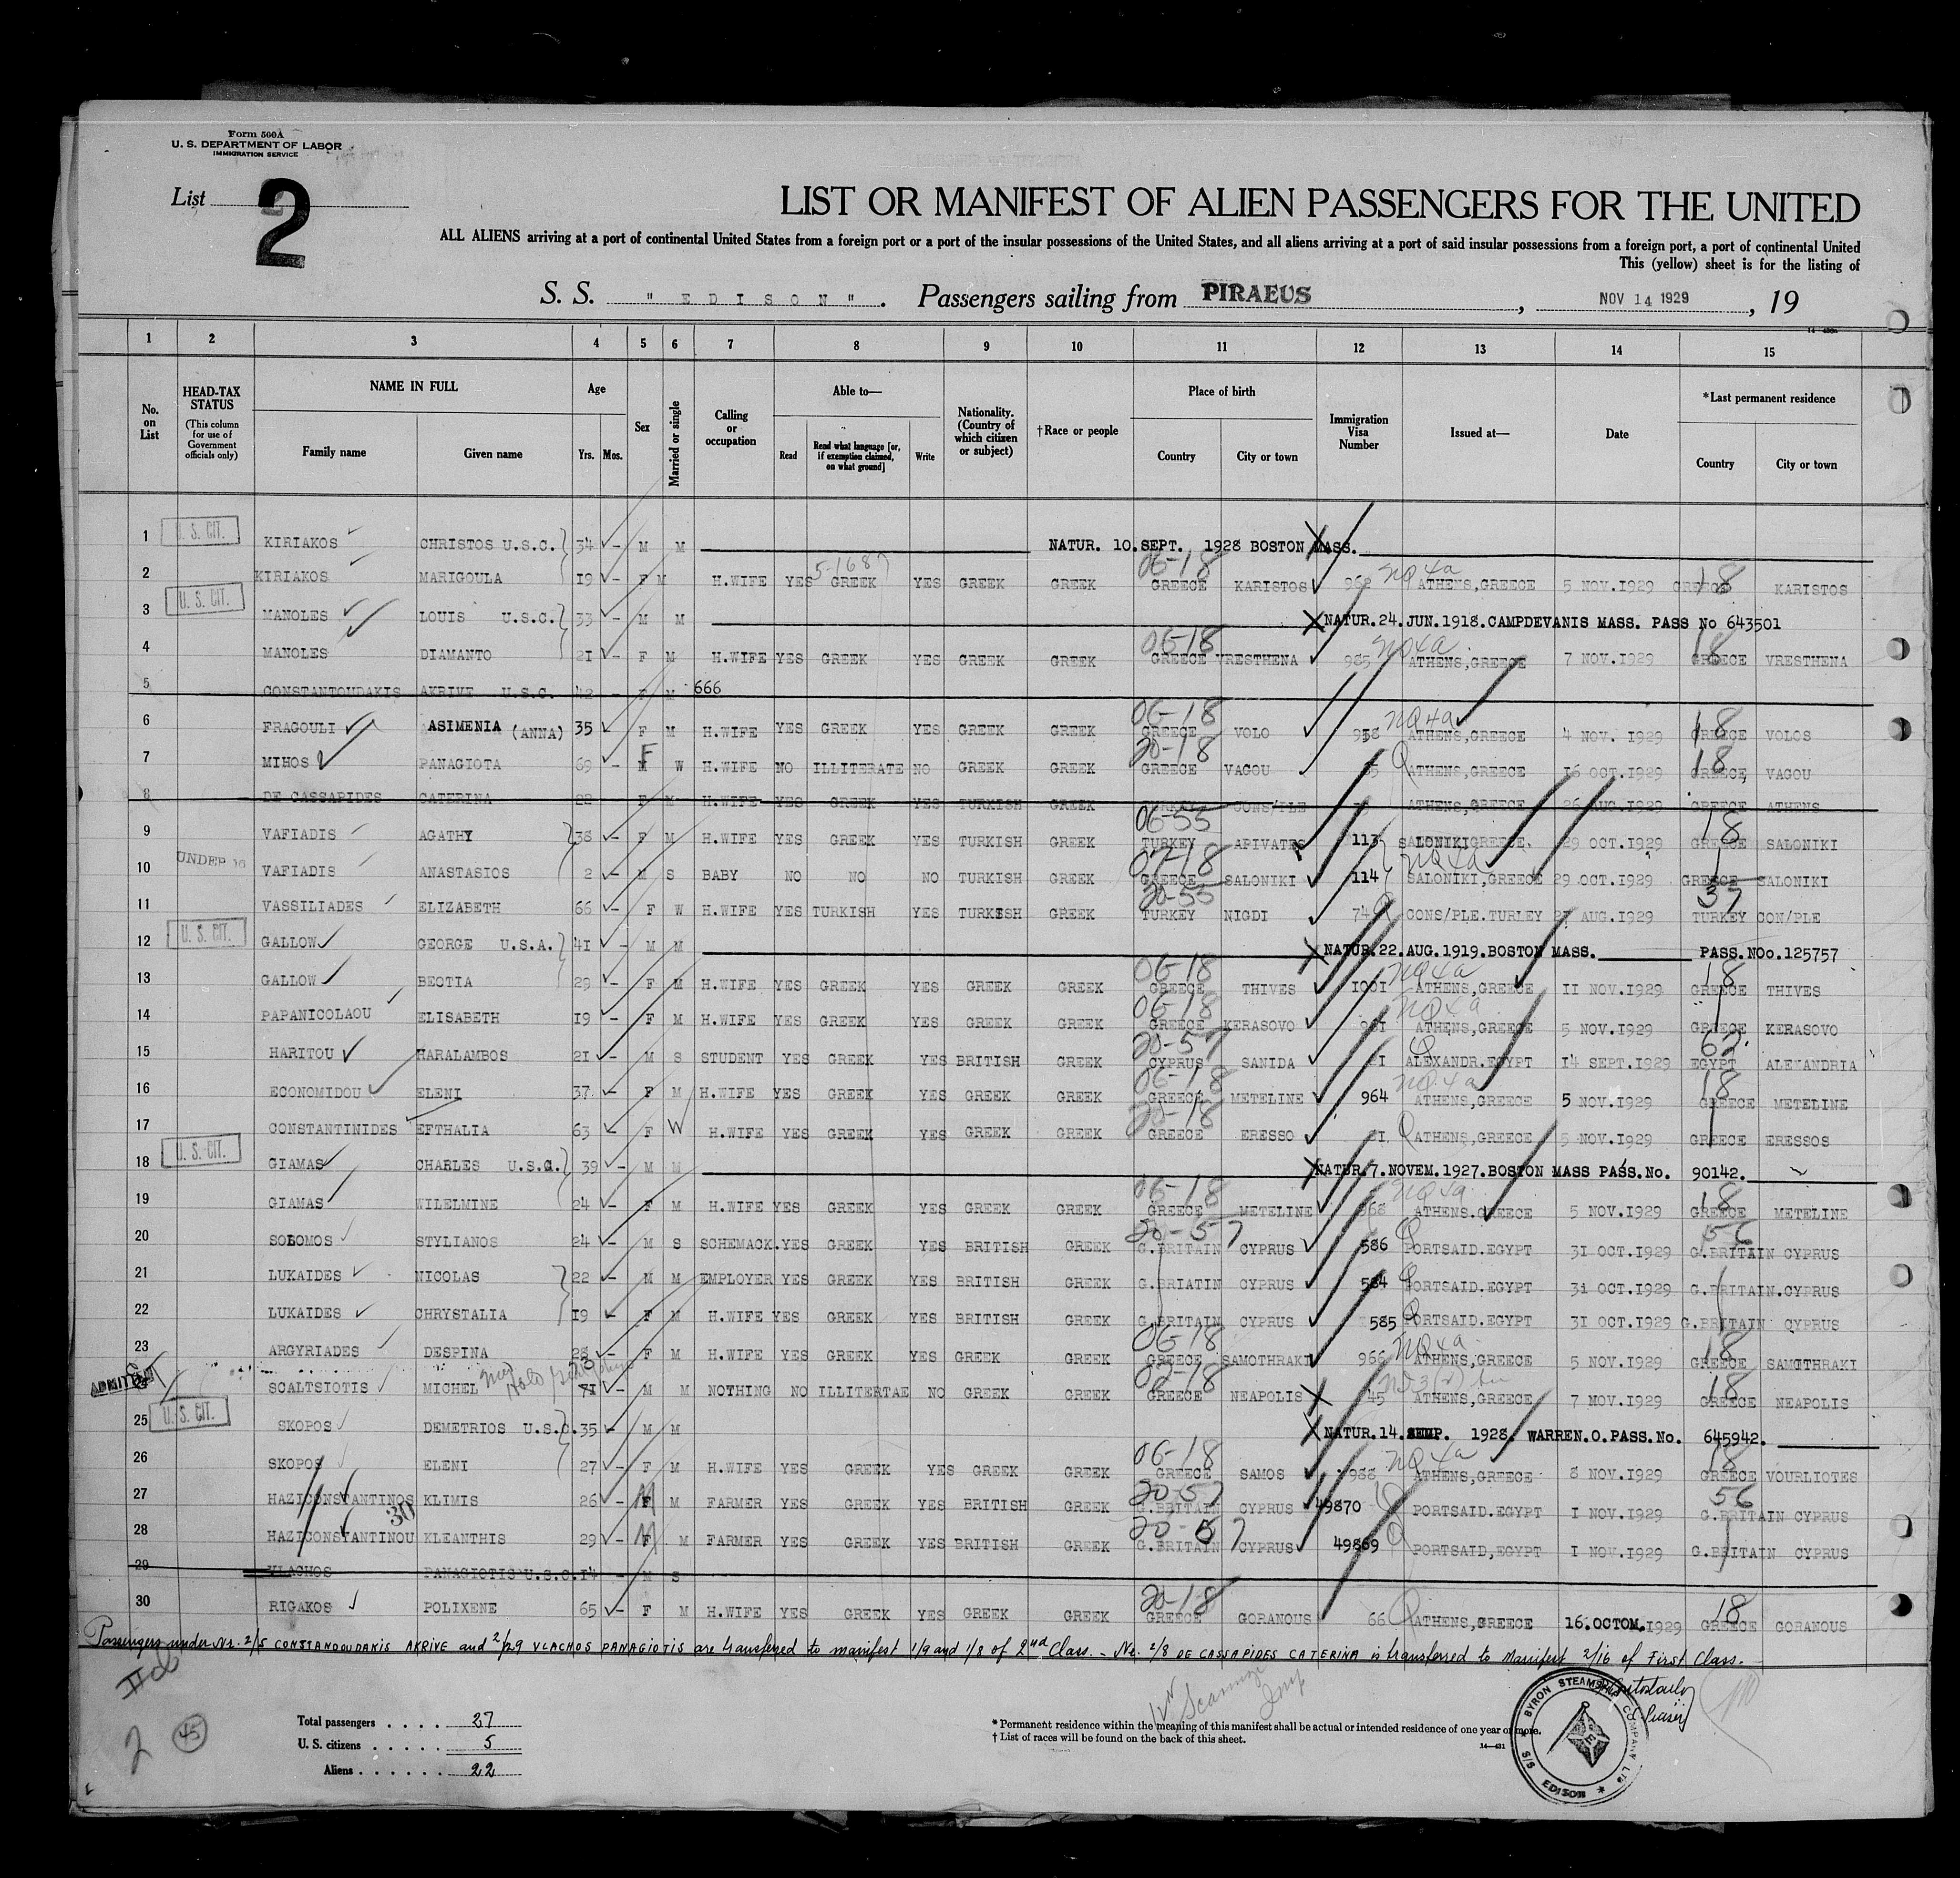 Form 500A
U. S. DEPARTMENT OF LABOR
IMMIGRATION SERVICE
List 2
LIST OR MANIFEST OF ALIEN PASSENGERS FOR THE UNITED
ALL ALIENS arriving at a port of continental United States from a foreign port or a port of the insular possessions of the United States, and all aliens arriving at a port of said insular possessions from a foreign port, a port of continental United
This (yellow) sheet is for the listing of
S. S. "EDISON". Passengers sailing from PIRAEUS, NOV 14 1929, 19
1 2 3 4 5 6 7 8 9 10 11 12 13 14 15
No. on List
HEAD-TAX STATUS (This column for use of Government officials only)
NAME IN FULL Family name Given name
Age Yrs. Mos.
Sex
Married or single
Calling or occupation
Able to— Read Read what language [or, if exemption claimed, on what ground] Write
Nationality. (Country of which citizen or subject)
†Race or people
Place of birth Country City or town
Immigration Visa Number
Issued at—
Date
*Last permanent residence Country City or town
1 U. S. CIT. KIRIAKOS CHRISTOS U.S.C. 34 - M M NATUR. 10.SEPT. 1928 BOSTON MASS.
2 KIRIAKOS MARIGOULA 19 - F M H.WIFE YES 5-1687 GREEK YES GREEK GREEK 06-18 GREECE KARISTOS 962 NQ4a ATHENS,GREECE 5 NOV.1929 GREECE 18 KARISTOS
3 U. S. CIT. MANOLES LOUIS U.S.C. 33 - M M NATUR.24.JUN.1918.CAMPDEVANIS MASS. PASS No 643501
4 MANOLES DIAMANTO 21 - F M H.WIFE YES GREEK YES GREEK GREEK 06-18 GREECE VRESTHENA 985 NQ4a ATHENS,GREECE 7 NOV.1929 18 GREECE VRESTHENA
5 CONSTANTOUDAKIS AKRIVE U.S.C. 42 - F M 666
6 FRAGOULI ASIMENIA (ANNA) 35 F M H.WIFE YES GREEK YES GREEK GREEK 06-18 GREECE VOLO 958 NQ4a ATHENS,GREECE 4 NOV. 1929 18 GREECE VOLOS
7 MIHOS PANAGIOTA 69 - F W H.WIFE NO ILLITERATE NO GREEK GREEK 20-18 GREECE VAGOU Q ATHENS,GREECE 16 OCT.1929 18 GREECE, VAGOU
8 DE CASSAPIDES CATERINA 22 - F M H.WIFE YES GREEK YES TURKISH GREEK CONS/PLE ATHENS,GREECE 26 AUG.1929 GREECE ATHENS
9 VAFIADIS AGATHY 38 - F M H.WIFE YES GREEK YES TURKISH GREEK 06-55 TURKEY APIVATES 113 SALONIKIGREECE. 29 OCT.1929 18 GREECE SALONIKI
10 UNDER 16 VAFIADIS ANASTASIOS 2 - M S BABY NO NO NO TURKISH GREEK 07-18 GREECE SALONIKI 114 NQ4a SALONIKI,GREECE 29 OCT.1929 GREECE SALONIKI
11 VASSILIADES ELIZABETH 66 - F W H.WIFE YES TURKISH YES TURKISH GREEK 20-55 TURKEY NIGDI 74 Q CONS/PLE.TURLEY 27 AUG.1929 37 TURKEY CON/PLE
12 U. S. CIT. GALLOW GEORGE U.S.A. 41 - M M NATUR.22.AUG.1919.BOSTON MASS. PASS.NOo.125757
13 GALLOW BEOTIA 29 - F M H.WIFE YES GREEK YES GREEK GREEK 06-18 GREECE THIVES 1001 NQ4a ATHENS,GREECE 11 NOV.1929 18 GREECE THIVES
14 PAPANICOLAOU ELISABETH 19 - F M H.WIFE YES GREEK YES GREEK GREEK 06-18 GREECE KERASOVO 961 NQ4a ATHENS,GREECE 5 NOV.1929 GREECE KERASOVO
15 HARITOU HARALAMBOS 21 - M S STUDENT YES GREEK YES BRITISH GREEK 20-57 CYPRUS SANIDA 21 Q ALEXANDR.EGYPT 14 SEPT.1929 62 EGYPT ALEXANDRIA
16 ECONOMIDOU ELENI 37 - F M H.WIFE YES GREEK YES GREEK GREEK 06-18 GREECE METELINE 964 NQ4a ATHENS,GREECE 5 NOV.1929 18 GREECE METELINE
17 CONSTANTINIDES EFTHALIA 63 - F W H.WIFE YES GREEK YES GREEK GREEK 20-18 GREECE ERESSO 81. Q ATHENS,GREECE 5 NOV.1929 GREECE ERESSOS
18 U. S. CIT. GIAMAS CHARLES U.S.C. 39 - M M NATUR.7.NOVEM.1927.BOSTON MASS PASS.No. 90142.
19 GIAMAS WILELMINE 24 - F M H.WIFE YES GREEK YES GREEK GREEK 06-18 GREECE METELINE 968 NQ4a ATHENS.GREECE 5 NOV.1929 18 GREECE METELINE
20 SOLOMOS STYLIANOS 24 - M S SCHEMACK.YES GREEK YES BRITISH GREEK 20-57 G.BRITAIN CYPRUS 586 Q PORTSAID.EGYPT 31 OCT.1929 56 G.BRITAIN CYPRUS
21 LUKAIDES NICOLAS 22 - M M EMPLOYER YES GREEK YES BRITISH GREEK G.BRIATIN CYPRUS 584 Q PORTSAID.EGYPT 31 OCT.1929 G.BRITAIN.CYPRUS
22 LUKAIDES CHRYSTALIA 19 - F M H.WIFE YES GREEK YES BRITISH GREEK G.BRITAIN CYPRUS 585 Q PORTSAID.EGYPT 31 OCT.1929 G.BRITAIN CYPRUS
23 ARGYRIADES DESPINA 28 - F M H.WIFE YES GREEK YES GREEK GREEK 06-18 GREECE SAMOTHRAKI 966 NQ4a ATHENS,GREECE 5 NOV.1929 18 GREECE SAMOTHRAKI
ADMITTED SCALTSIOTIS MICHEL 71 73 - M M NOTHING NO ILLITERTAE NO GREEK GREEK 02-18 GREECE NEAPOLIS 45 ATHENS,GREECE 7 NOV.1929 18 GREECE NEAPOLIS
25 U. S. CIT. SKOPOS DEMETRIOS U.S.C. 35 - M M NATUR.14. 1928. WARREN.O.PASS.No. 645942.
26 SKOPOS ELENI 27 - F M H.WIFE YES GREEK YES GREEK GREEK 06-18 GREECE SAMOS 988 NQ4a ATHENS,GREECE 8 NOV.1929 18 GREECE VOURLIOTES
27 HAZICONSTANTINOS KLIMIS 26 - M M FARMER YES GREEK YES BRITISH GREEK 20-57 G.BRITAIN CYPRUS 49870 Q PORTSAID.EGYPT 1 NOV.1929 56 G.BRITAIN CYPRUS
28 HAZICONSTANTINOU 30 KLEANTHIS 29 - M M FARMER YES GREEK YES BRITISH GREEK 20-57 G.BRITAIN CYPRUS 49869 Q PORTSAID,EGYPT 1 NOV.1929 G.BRITAIN CYPRUS
29 VLACHOS PANAGIOTIS U.S.C. 14 - M S
30 RIGAKOS POLIXENE 65 - F M H.WIFE YES GREEK YES GREEK GREEK 20-18 GREECE GORANOUS 66 Q ATHENS,GREECE 16.OCTOM.1929 18 GREECE GORANOUS
Passengers under Nr. 2/5 CONSTANDOUDAKIS AKRIVE and 2/29 VLACHOS PANAGIOTIS are transferred to manifest 1/9 and 1/8 of 2nd Class. - Nr. 2/8 DE CASSAPIDES CATERINA is transferred to Manifest 2/16 of First Class.
2 45
Total passengers . . . . 27
U. S. citizens . . . . . 5
Aliens . . . . . . 22
* Permanent residence within the meaning of this manifest shall be actual or intended residence of one year or more.
† List of races will be found on the back of this sheet.
14—431
BYRON STEAMSHIP COMPANY LTD * S/S EDISON *